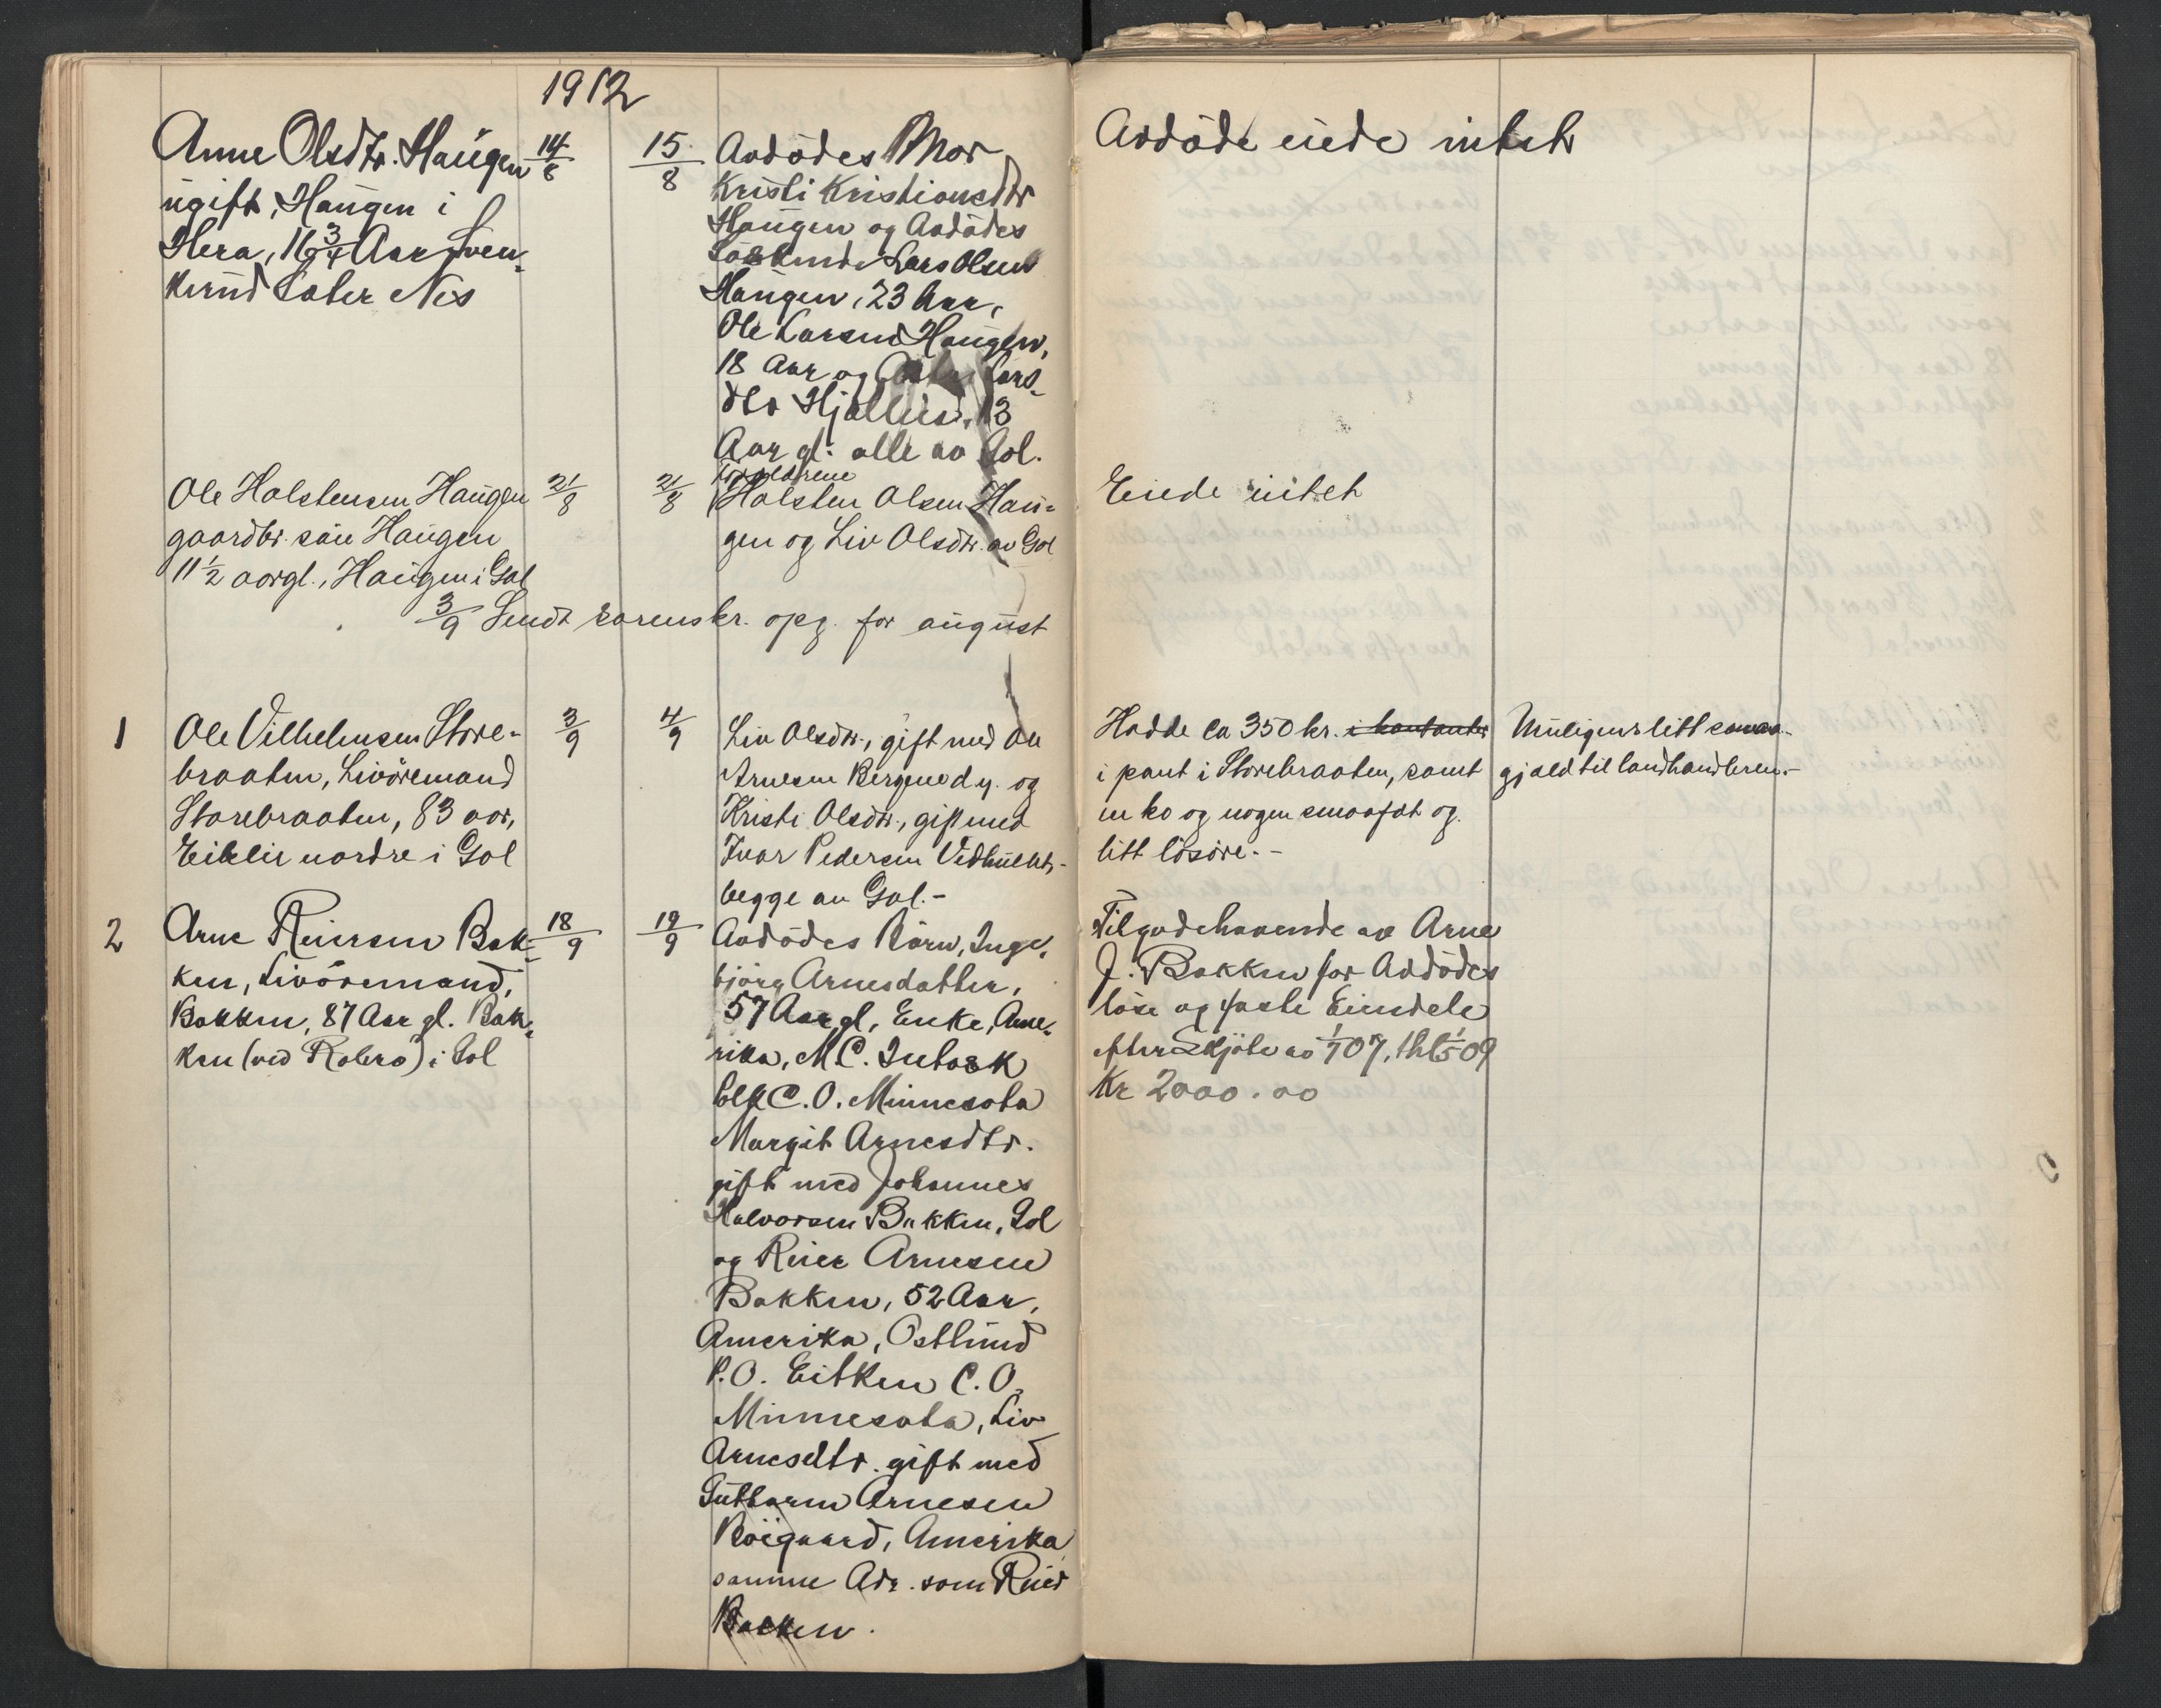 1912
Anne Olsdtr. Haugen
ugift, Haugen i
Hera, 16 3/4 Aar Sven-
kerud Sæter Nes
14/8
15/8
Avdödes Mor
Kristi Kristiansdtr
Haugen og Avdödes
Söskende Lars Olsen
Haugen, 23 Aar,
Ole Larsen Haugen,
18 Aar og Lars-
dtr Hjallen, 13
Aar gl. alle av Gol.
Avdöde eiede intet
Ole Halstensen Haugen
gaardbr. sön Haugen
11 1/2 aar gl., Haugen i Gol
21/8
21/8
Forældrene
Halsten Olsen Hau-
gen og Liv Olsdtr. av Gol
Eiede intet
3/9 Sendt sorenskr. opg. for august
1
Ole Vilhelmsen Store-
braaten, Livöremand
Storebraaten, 83 aar,
Eiklir nordre i Gol
3/9
4/9
Liv Olsdtr., gift med Ole
Arnesen og
Kristi Olsdtr., gift med
Ivar Pedersen
begge av Gol.-
Hadde ca 350 kr. i kontanter
i pant i Storebraaten, samt
en ko og nogen smaafæ og
litt lösöre.-
Muligens litt smaa-
gjæld til landhandleren.-
2
Arne Reiersen Bak-
ken, Livöremand,
Bakken, 87 Aar gl. Bak-
ken (ved Robro) i Gol
18/9
19/9
Avdödes Börn, Inge-
björg Arnesdatter,
57 Aar gl, Enke, Ame-
rika, M.C. Intosk
Polk C.O. Minnesota
Margit Arnesdtr.
gift med Johannes
Halvorsen Bakken, Gol
og Reier Arnesen
Bakken, 52 Aar,
Amerika, Östlund
P.O. Eitken C.O.
Minnesota, Liv
Arnesdtr. gift med
Guttorm Arnesen
Röigaard, Amerika
samme Adr. som Reier
Bakken.
Tilgodehavende av Arne
J. Bakken for Avdödes
löse og faste Eiendele
efter Skjöte av 1/7 07, thl 1/5 09
Kr 2000.00